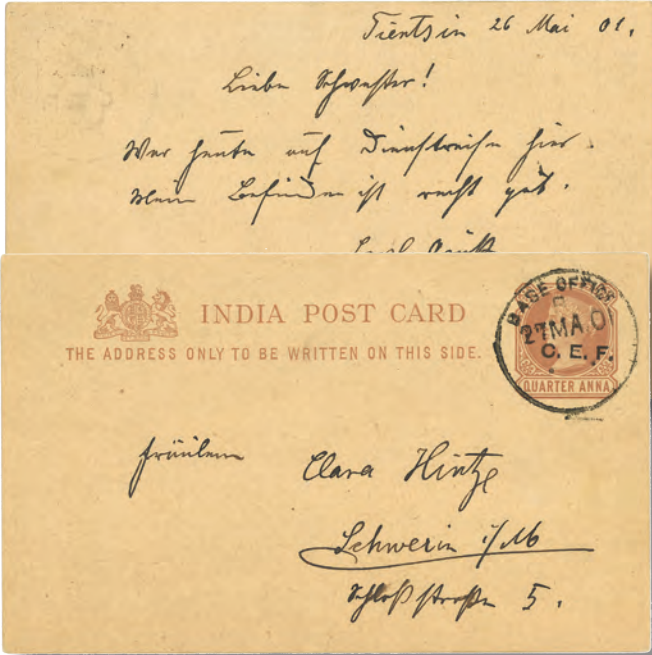 Tientsin 26 Mai 01.
Liebe Schwester!
War heute auf Dienstreise hier.
Mein Befinden ist recht gut.
INDIA POST CARD
THE ADDRESS ONLY TO BE WRITTEN ON THIS SIDE.
BASE OFFICE
27 MA 0
C. E. F.
QUARTER ANNA
Fräulein Clara Hintze
Schwerin i/M
Schloßstraße 5.